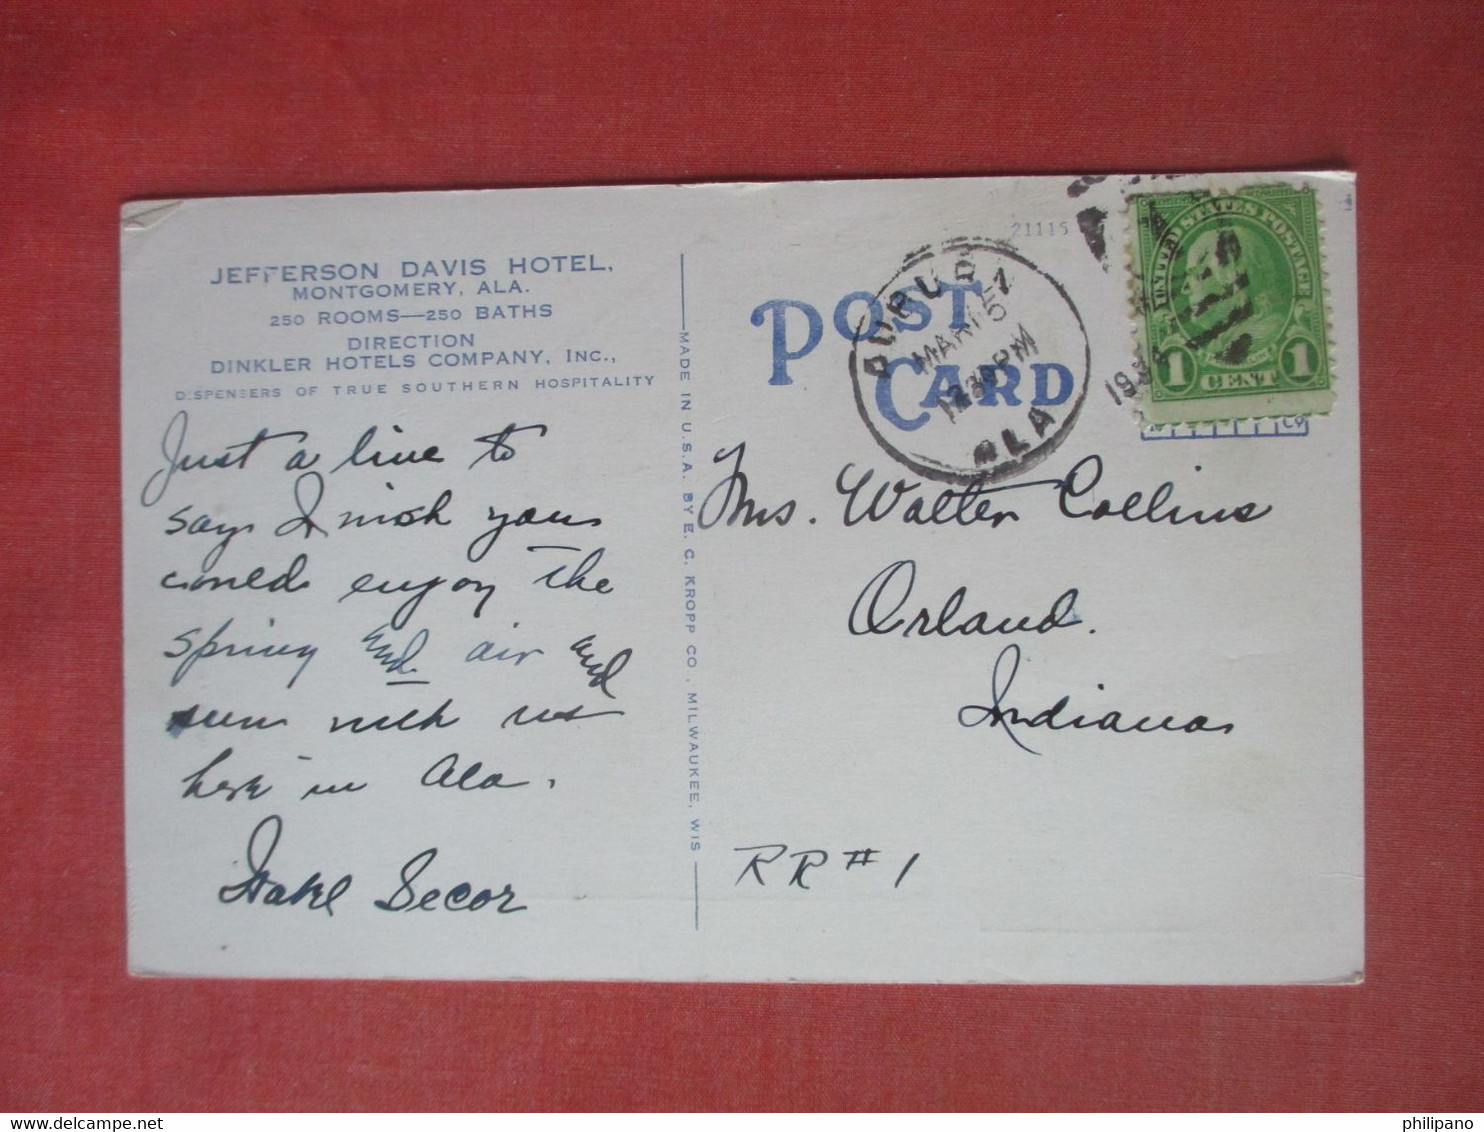 JEFFERSON DAVIS HOTEL,
MONTGOMERY, ALA.
250 ROOMS—250 BATHS
DIRECTION
DINKLER HOTELS COMPANY, INC.,
DISPENSERS OF TRUE SOUTHERN HOSPITALITY
Just a line to
say I wish you
could enjoy the
spring and air and
sun with us
here in Ala.
Secor
MADE IN U.S.A. BY E. C. KROPP CO., MILWAUKEE, WIS
21115
POST
CARD
AUBURN
MAR 15
12 30 PM
ALA
193
UNITED STATES POSTAGE
1 CENT 1
Co
Mrs. Walter Collins
Orland.
Indiana
RR # 1
philipano